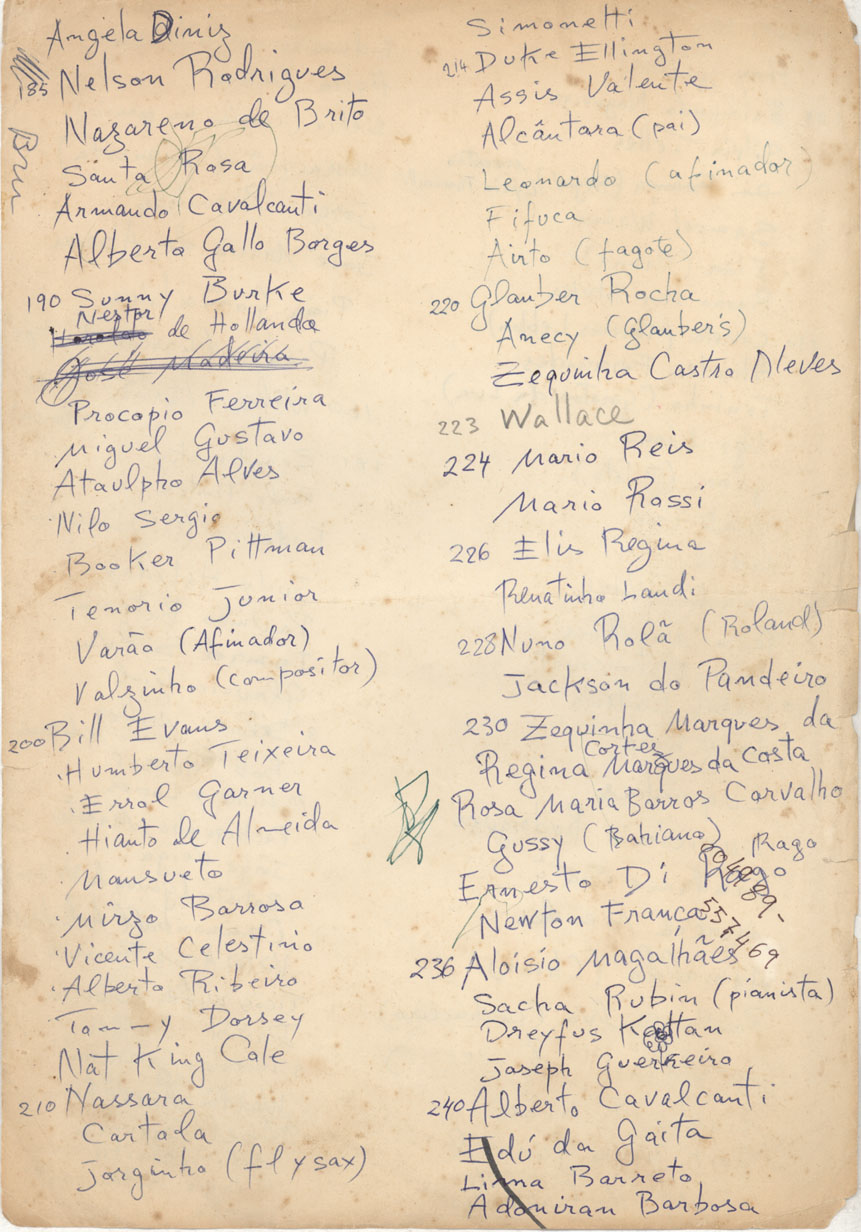 Angela Diniz
185 Nelson Rodrigues
Bru
Nazareno de Brito
Santa Rosa
Armando Cavalcanti
Alberto Gallo Borges
190 Sunny Burke
Nestor
Haroldo de Hollanda
José Madeira
Procopio Ferreira
Miguel Gustavo
Ataulpho Alves
Nilo Sergio
Booker Pittman
Tenorio Junior
Varão (Afinador)
Valzinho (compositor)
200 Bill Evans
Humberto Teixeira
Errol Garner
Hianto de Almeida
Mansueto
Mirzo Barroso
Vicente Celestino
Alberto Ribeiro
Tommy Dorsey
Nat King Cole
210 Nassara
Cartola
Jorginho (fl y sax)
Simonetti
214 Duke Ellington
Assis Valente
Alcântara (pai)
Leonardo (afinador)
Fifuca
Airto (fagote)
220 Glauber Rocha
Anecy (Glauber's)
Zequinha Castro Neves
223 Wallace
224 Mario Reis
Mario Rossi
226 Elis Regina
Renatinho Landi
228 Nuno Rolã (Roland)
Jackson do Pandeiro
230 Zequinha Marques da
Cortez
Regina Marques da Costa
Rosa Maria Barros Carvalho
Gussy (Bahiano)
Rago
Ernesto Di
Newton França
557469
236 Aloisio Magalhães
Sacha Rubin (pianista)
Dreyfus
Joseph Guerreiro
240 Alberto Cavalcanti
Edú da Gaita
Lima Barreto
Adoniran Barbosa